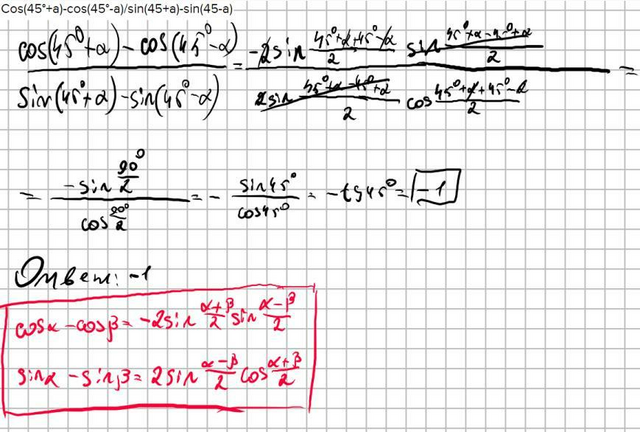 Cos(45°+a)-cos(45°-a)/sin(45+a)-sin(45-a)
cos(45⁰+α)-cos(45⁰-α)/sin(45⁰+α)-sin(45⁰-α) = -2sin 45⁰+α+45⁰-α/2 sin 45⁰+α-45⁰+α/2 / 2sin 45⁰+α-45⁰+α/2 cos 45⁰+α+45⁰-α/2 =
= -sin 90⁰/2 / cos 90⁰/2 = - sin45⁰/cos45⁰ = -tg45⁰ = -1
Ответ: -1
cosα-cosβ=-2sin α+β/2 sin α-β/2
sinα-sinβ=2sin α-β/2 cos α+β/2